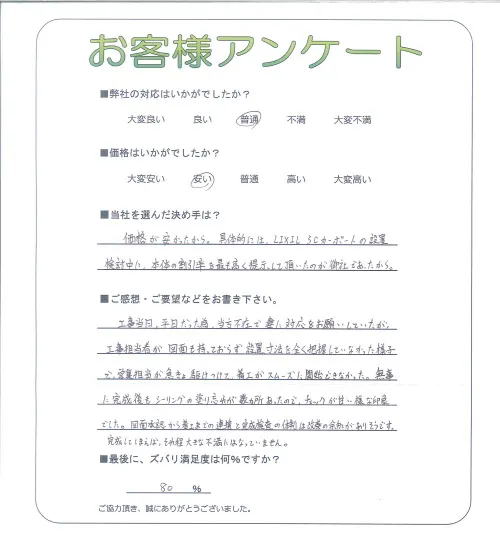 お客様アンケート
■弊社の対応はいかがでしたか?
大変良い 良い 普通 不満 大変不満
■価格はいかがでしたか?
大変安い 安い 普通 高い 大変高い
■当社を選んだ決め手は?
価格が安かったから。具体的には、LIXIL SCカーポートの設置
検討中に、本体の割引率を最も高く提示して頂いたのが御社であたから。
■ご感想・ご要望などをお書き下さい。
工事当日、平日だった為、当方不在で妻に対応をお願いしていたが、
工事担当者が図面も持っておらず設置寸法を全く把握していなかった様子
で、営業担当が急きょ駆けつけて、着工がスムーズに開始できなかった。無事
に完成後もシーリングの塗り忘れが数ヶ所あったので、チェックが甘い様な印象
でした。図面承認から着工までの連携と完成検査の体制は改善の余地がありそうです。
完成してしまえば、それ程大きな不満にはなっていません。
■最後に、ズバリ満足度は何%ですか?
80 %
ご協力頂き、誠にありがとうございました。